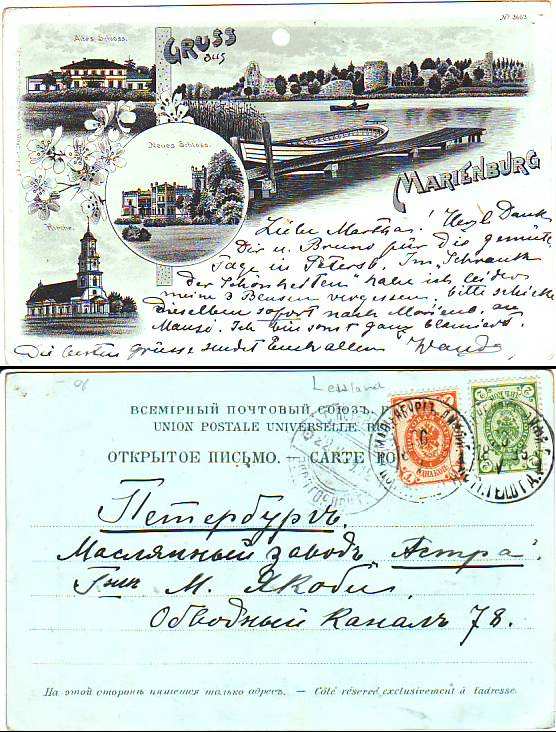 Nº 3663
Altes Schloss.
GRUSS
aus
Neues Schloss.
MARIENBURG
Kirche.
Liebe Martha! Herzl Dank
Dir u. Bruno für die gemütl
Tage in Petersb. Im "Schrank
der Schönheiten" habe ich leider
meine 3 Blusen vergessen, bitte schicke
dieselben sofort nach Marienb. an
Manzi. Ich bin sonst ganz blamiert.
Die besten Grüsse sendet Euch allen Wanda
Lettland
ВСЕМІРНЫЙ ПОЧТОВЫЙ СОЮЗЪ.
UNION POSTALE UNIVERSELLE.
ОТКРЫТОЕ ПИСЬМО. — CARTE PO
Петербургъ.
Маслянный заводъ „Астра"
Г-жѣ М. Якоби.
Обводный каналъ 78.
На этой сторонѣ пишется только адресъ. — Côté réservé exclusivement à l'adresse.